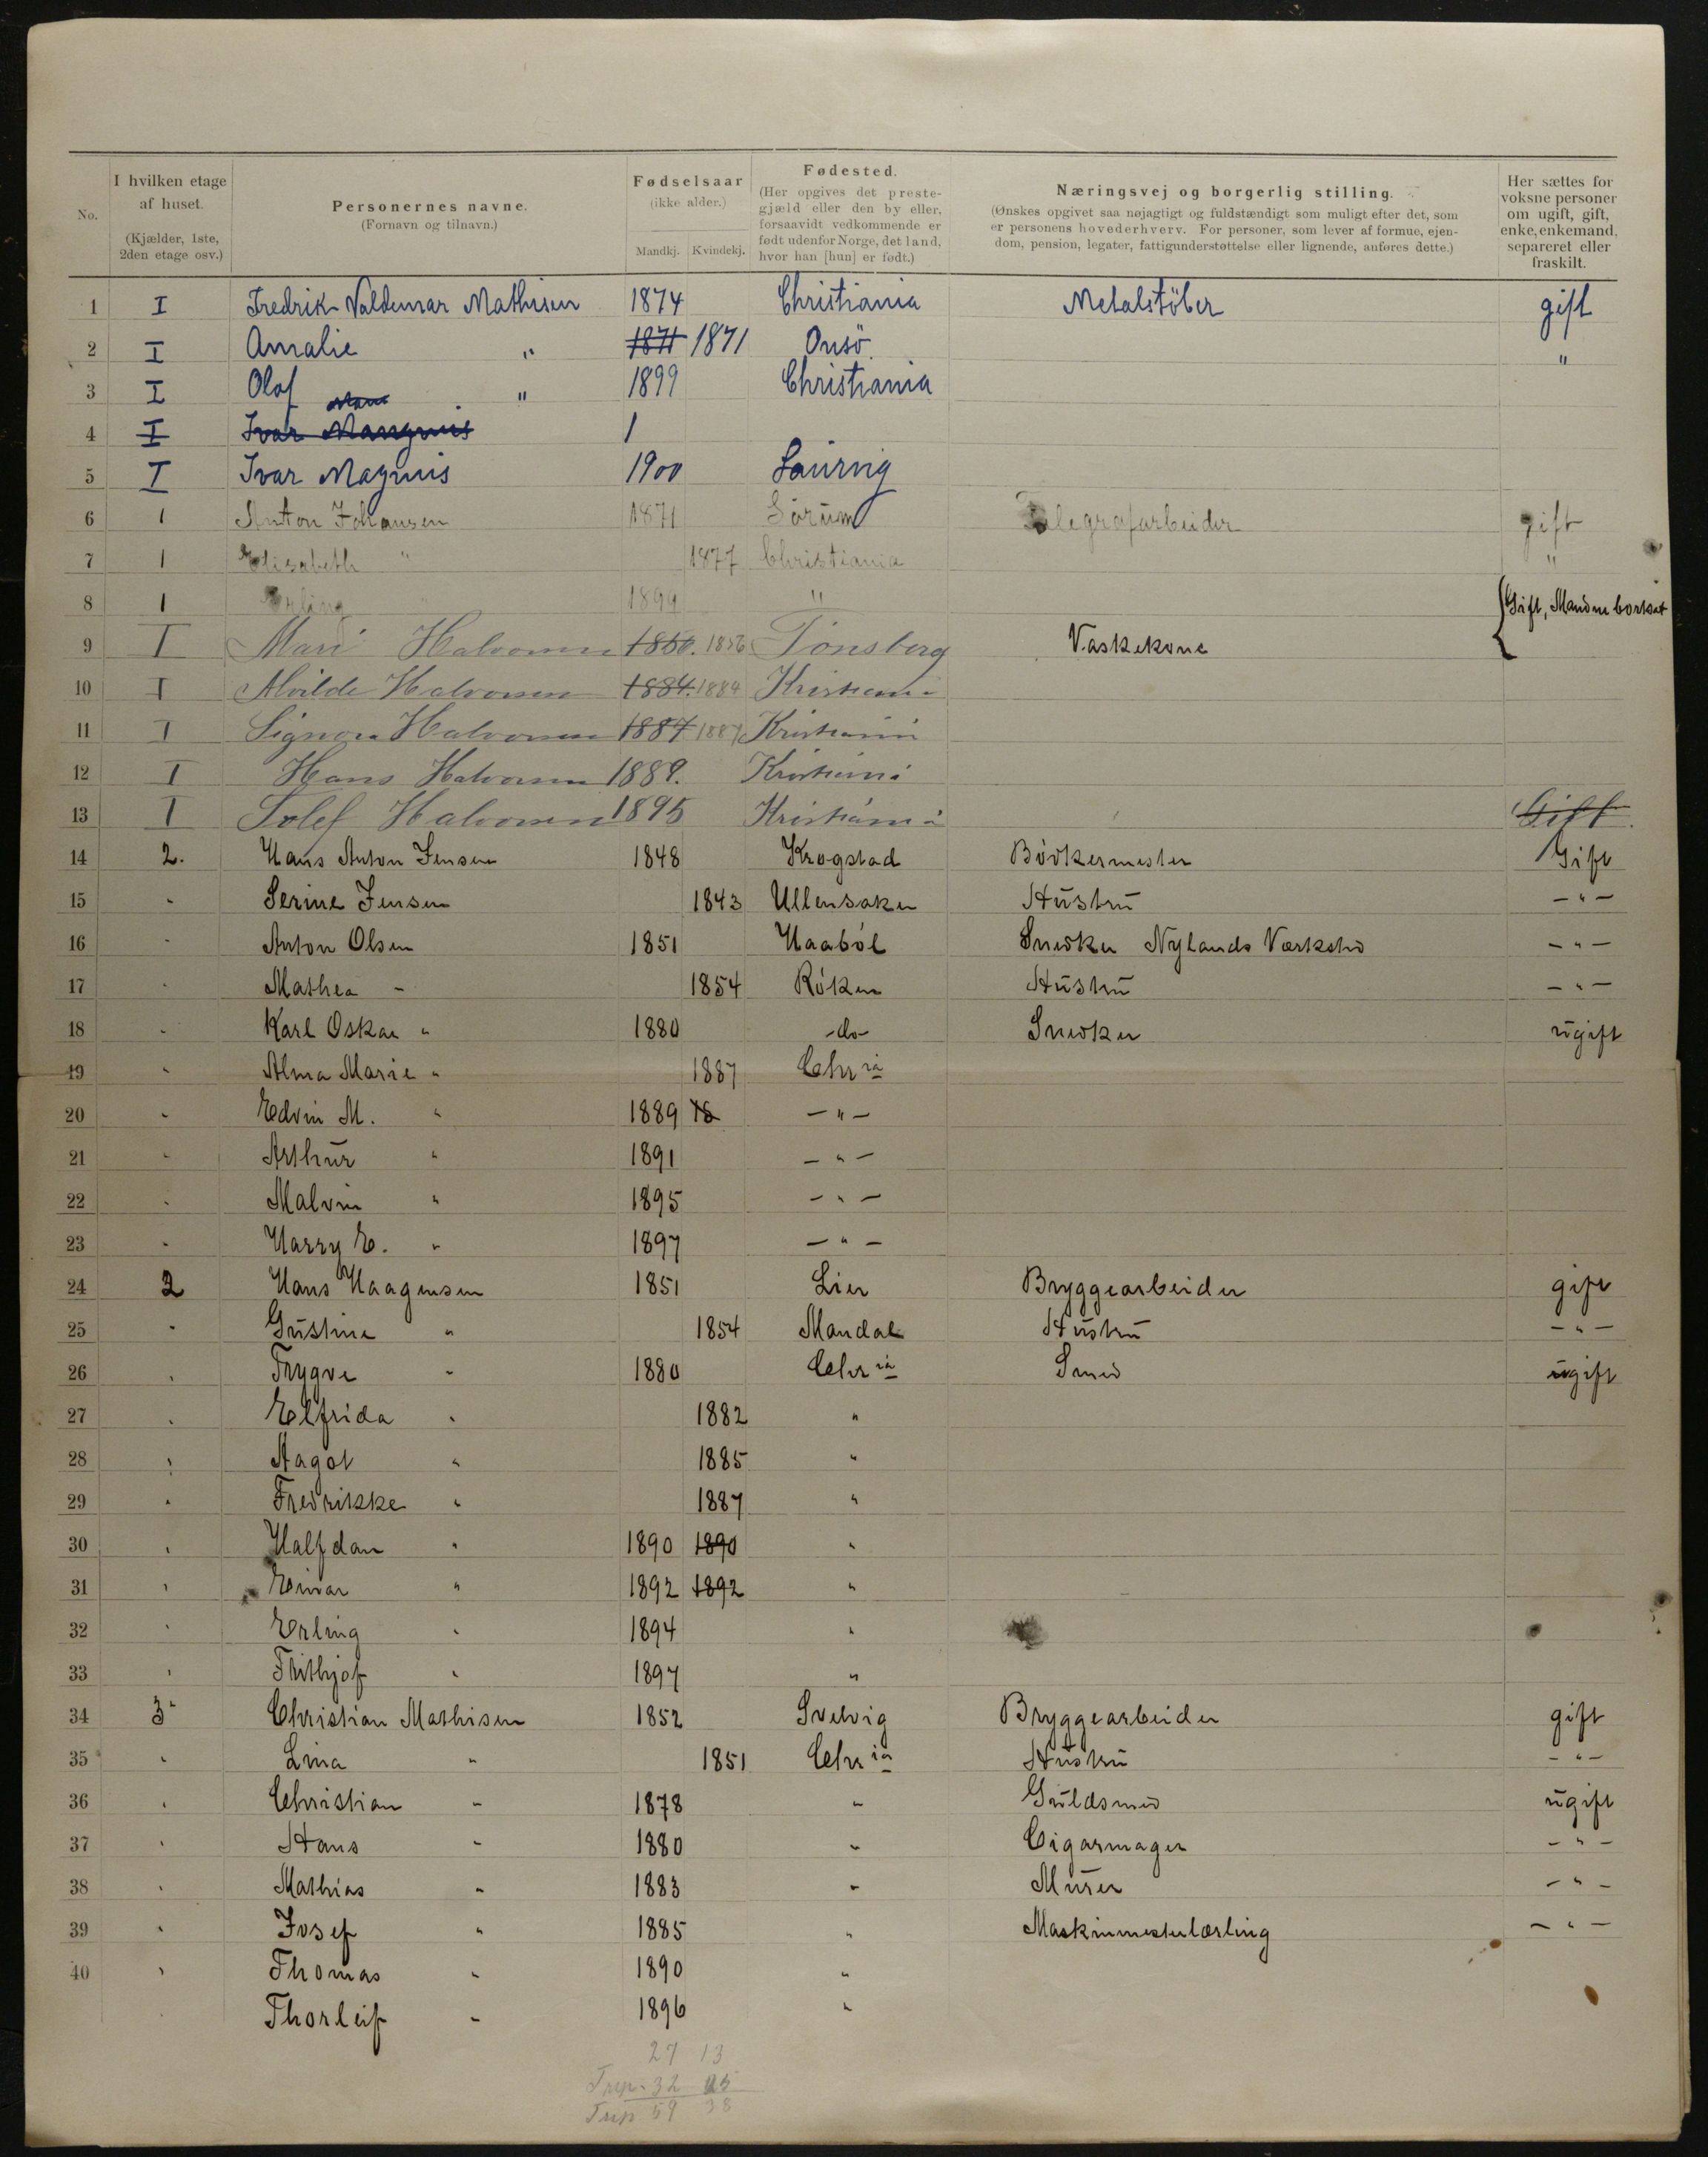 No.
I hvilken etage af huset.
(Kjælder, 1ste, 2den etage osv.)
Personernes navne.
(Fornavn og tilnavn.)
Fødselsaar
(ikke alder.)
Mandkj. Kvindekj.
Fødested.
(Her opgives det prestegjæld eller den by eller, forsaavidt vedkommende er født udenfor Norge, det land, hvor han [hun] er født.)
Næringsvej og borgerlig stilling.
(Ønskes opgivet saa nøjagtigt og fuldstændigt som muligt efter det, som er personens hovederhverv. For personer, som lever af formue, ejendom, pension, legater, fattigunderstøttelse eller lignende, anføres dette.)
Her sættes for voksne personer om ugift, gift, enke, enkemand, separeret eller fraskilt.
1 I Fredrik Valdemar Mathisen 1874 Christiania Metalstöber gift
2 I Amalie " 1871 1871 Onsö "
3 I Olaf " 1899 Christiania
4 I Ivar Mangnus 1
5 I Ivar Magnus 1900 Laurvig
6 1 Anton Johansen 1871 Sörum Telegrafarbeider gift
7 1 Elisabeth " 1877 Christiania "
8 1 Erling " 1899 "
9 I Mari Halvorsen 1856. 1856 Tönsberg Vaskekone Gift, Manden bortsat
10 I Alvilde Halvorsen 1884. 1884 Kristiania
11 I Signora Halvorsen 1887 1887 Kristiania
12 I Hans Halvorsen 1889. Kristiania
13 I Tolef Halvorsen 1895 Kristiania Gift.
14 2. Hans Anton Jensen 1848 Krogstad Bödkermester Gift
15 " Serine Jensen 1843 Ullensaker Hustru - " -
16 " Anton Olsen 1851 Haaböl Snedker Nylands Værksted - " -
17 " Mathea " 1854 Röken Hustru - " -
18 " Karl Oskar " 1880 -do- Snedker ugift
19 " Alma Marie " 1887 Chria
20 " Edvin M. " 1889 18 - " -
21 " Arthur " 1891 - " -
22 " Malvin " 1895 - " -
23 " Harry E. " 1897 - " -
24 2 Hans Haagensen 1851 Lier Bryggearbeider gift
25 " Gustine " 1854 Mandal Hustru - " -
26 " Trygve " 1880 Chria Smed ugift
27 " Elfrida " 1882 "
28 " Aagot " 1885 "
29 " Fredrikke " 1887 "
30 " Halfdan " 1890 1890 "
31 " Einar " 1892 1892 "
32 " Erling " 1894 "
33 " Frithjof " 1897 "
34 3 Christian Mathisen 1852 Svelvig Bryggearbeider gift
35 " Lina " 1851 Chria Hustru - " -
36 " Christian " 1878 " Guldsmed ugift
37 " Hans " 1880 " Cigarmager - " -
38 " Mathias " 1883 " Murer - " -
39 " Josef " 1885 " Maskinmesterlærling - " -
40 " Thomas " 1890 "
" Thorleif " 1896 "
27 13
32 25
59 38